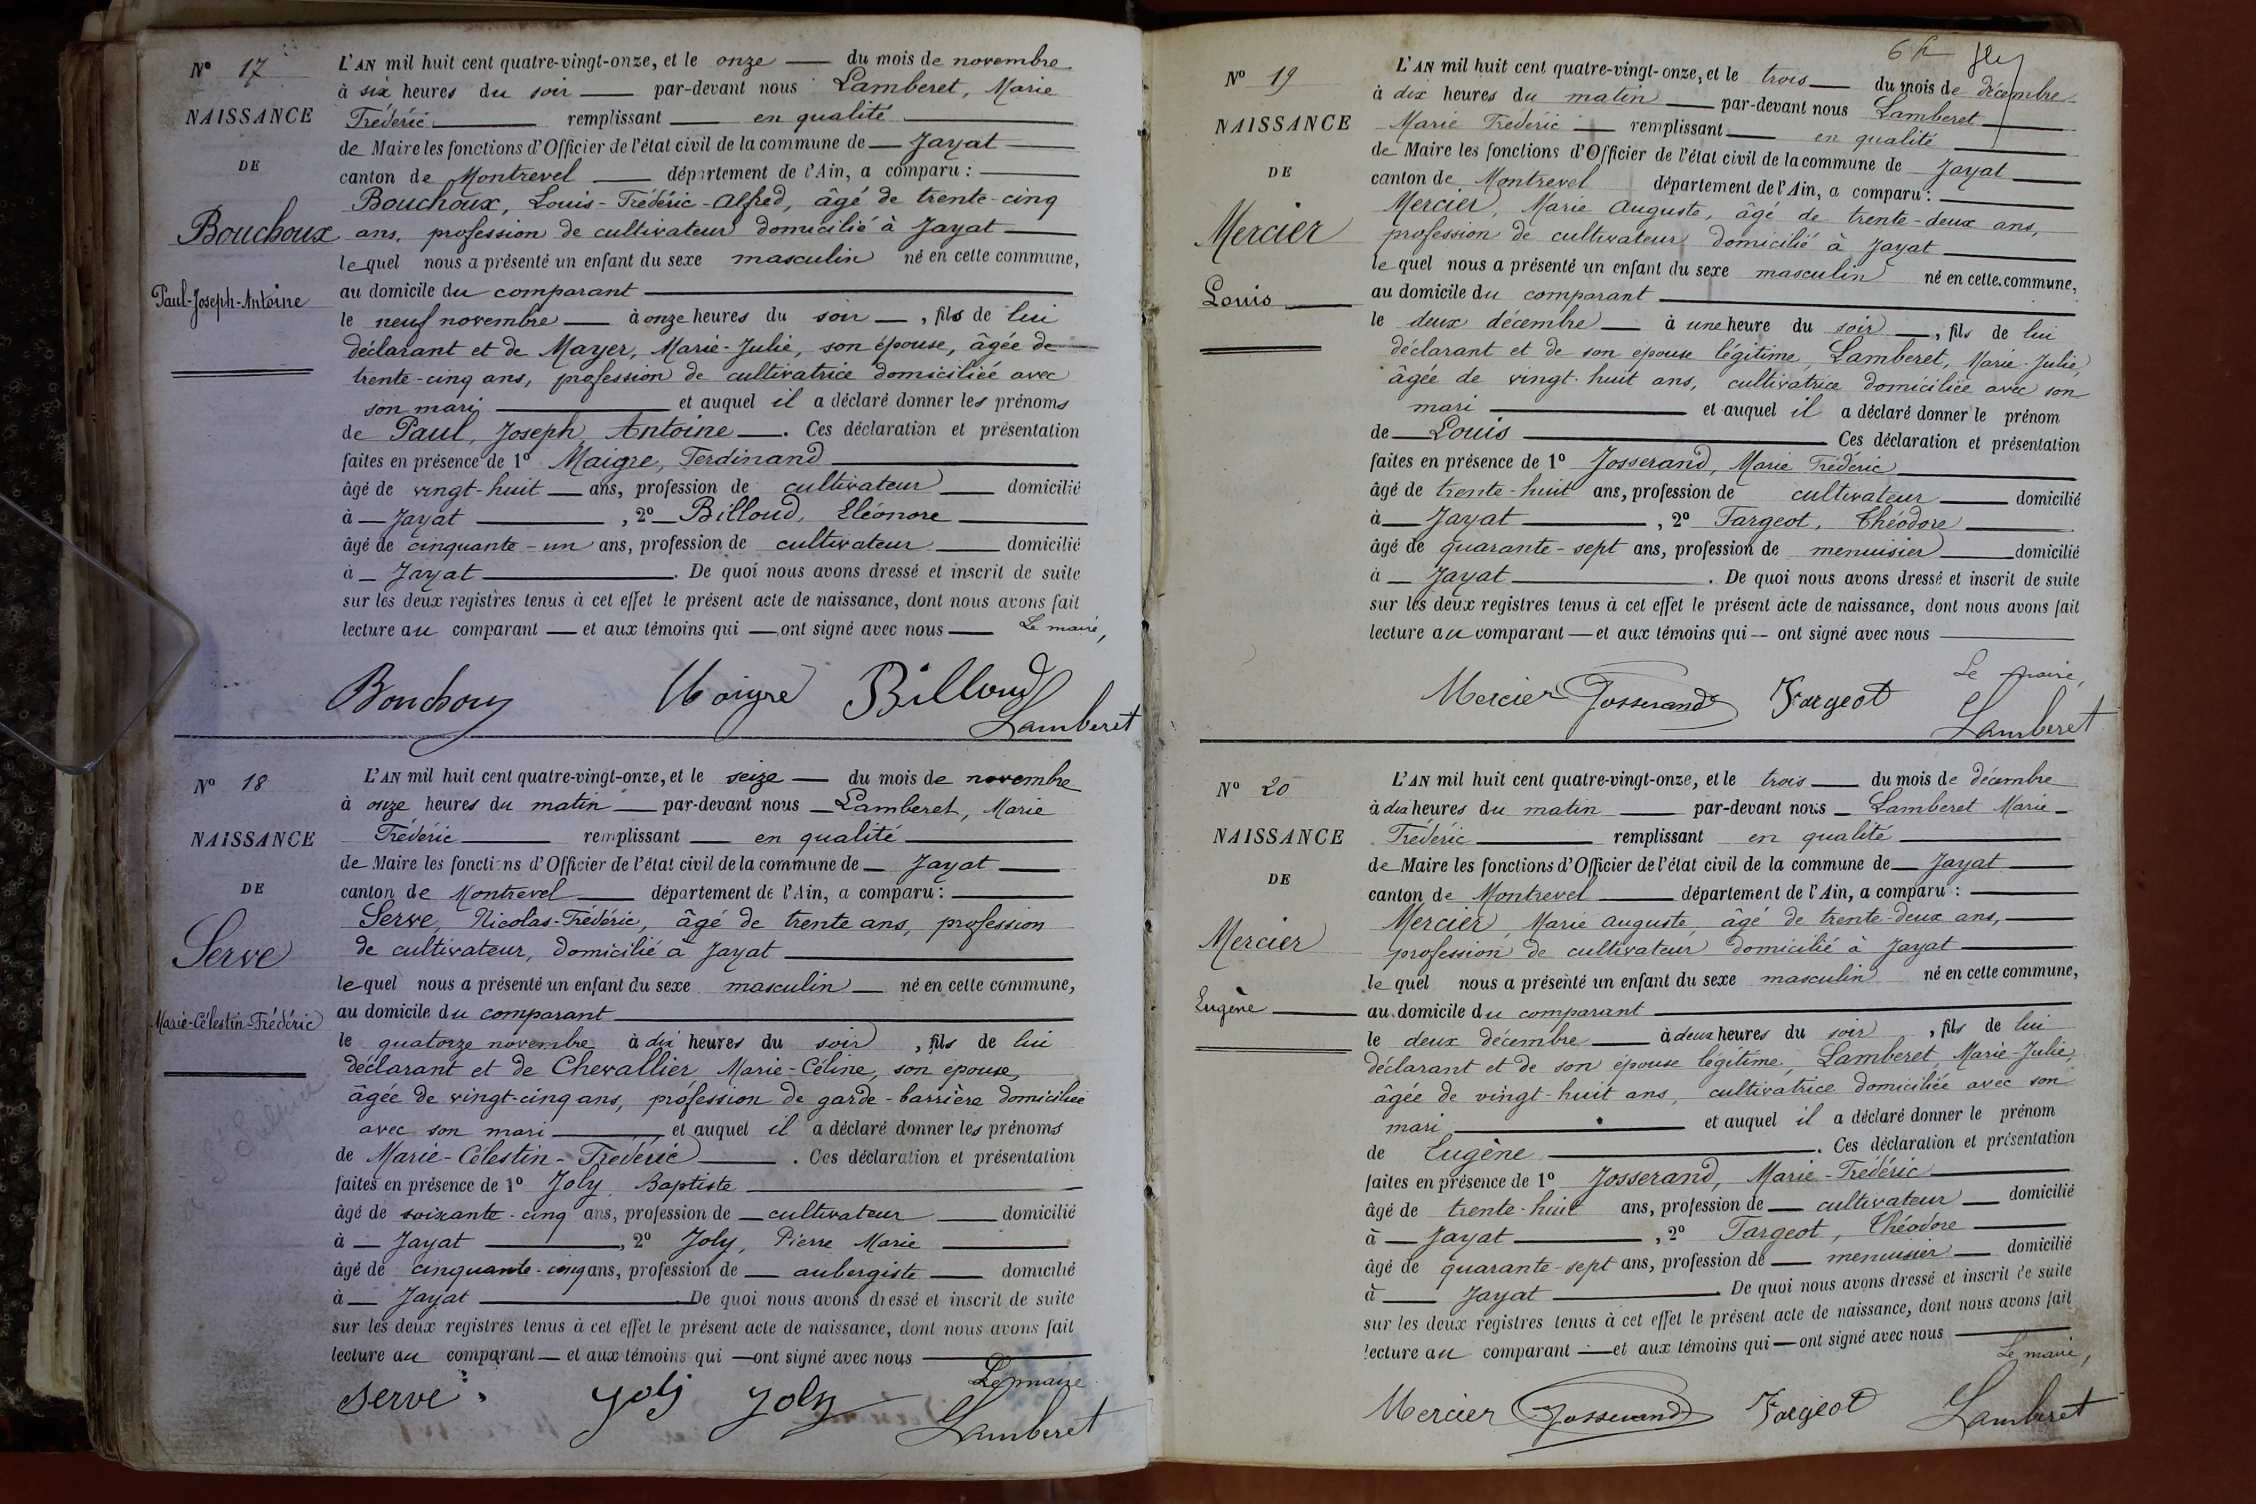 Nº 17
NAISSANCE
DE
Bouchoux
Paul-Joseph-Antoine
L'AN mil huit cent quatre-vingt-onze, et le onze — du mois de novembre
à six heures du soir — par-devant nous Lamberet, Marie
Frédéric — remplissant — en qualité —
de Maire les fonctions d'Officier de l'état civil de la commune de — Jayat —
canton de Montrevel — département de l'Ain, a comparu : —
Bouchoux, Louis-Frédéric-Alfred, âgé de trente-cinq
ans, profession de cultivateur domicilié à Jayat —
lequel nous a présenté un enfant du sexe masculin né en cette commune,
au domicile du comparant —
le neuf novembre — à onze heures du soir —, fils de lui
déclarant et de Mayer, Marie-Julie, son épouse, âgée de
trente-cinq ans, profession de cultivatrice domiciliée avec
son mari — et auquel il a déclaré donner les prénoms
de Paul, Joseph, Antoine —. Ces déclaration et présentation
faites en présence de 1º Maigre, Ferdinand —
âgé de vingt-huit — ans, profession de cultivateur — domicilié
à — Jayat —, 2º — Billoud, Eléonore —
âgé de cinquante-un ans, profession de cultivateur — domicilié
à — Jayat —. De quoi nous avons dressé et inscrit de suite
sur les deux registres tenus à cet effet le présent acte de naissance, dont nous avons fait
lecture au comparant — et aux témoins qui — ont signé avec nous — Le maire,
Bouchoux Maigre Billoud
Lamberet
Nº 18
NAISSANCE
DE
Serve
Marie-Célestin-Frédéric
L'AN mil huit cent quatre-vingt-onze, et le seize — du mois de novembre
à onze heures du matin — par-devant nous — Lamberet, Marie
Frédéric — remplissant — en qualité —
de Maire les fonctions d'Officier de l'état civil de la commune de — Jayat —
canton de Montrevel — département de l'Ain, a comparu : —
Serve, Nicolas-Frédéric, âgé de trente ans, profession
de cultivateur, domicilié à Jayat —
lequel nous a présenté un enfant du sexe masculin — né en cette commune,
au domicile du comparant —
le quatorze novembre à dix heures du soir, fils de lui
déclarant et de Chevallier Marie-Céline, son épouse,
âgée de vingt-cinq ans, profession de garde-barrière domiciliée
avec son mari — et auquel il a déclaré donner les prénoms
de Marie-Célestin-Frédéric —. Ces déclaration et présentation
faites en présence de 1º Joly, Baptiste —
âgé de soixante-cinq ans, profession de — cultivateur — domicilié
à — Jayat —, 2º Joly, Pierre Marie —
âgé de cinquante-cinq ans, profession de — aubergiste — domicilié
à — Jayat — De quoi nous avons dressé et inscrit de suite
sur les deux registres tenus à cet effet le présent acte de naissance, dont nous avons fait
lecture au comparant — et aux témoins qui — ont signé avec nous —
Le maire
serve Joly Joly
Lamberet
Nº 19
NAISSANCE
DE
Mercier
Louis —
L'AN mil huit cent quatre-vingt-onze, et le trois — du mois de décembre
à dix heures du matin — par-devant nous Lamberet —
Marie Frédéric — remplissant — en qualité —
de Maire les fonctions d'Officier de l'état civil de la commune de Jayat —
canton de Montrevel département de l'Ain, a comparu : —
Mercier, Marie Auguste, âgé de trente-deux ans,
profession de cultivateur domicilié à Jayat —
lequel nous a présenté un enfant du sexe masculin né en cette commune,
au domicile du comparant —
le deux décembre — à une heure du soir —, fils de lui
déclarant et de son épouse légitime, Lamberet, Marie-Julie,
âgée de vingt-huit ans, cultivatrice domiciliée avec son
mari — et auquel il a déclaré donner le prénom
de — Louis — Ces déclaration et présentation
faites en présence de 1º Josserand, Marie Frédéric —
âgé de trente-huit ans, profession de cultivateur — domicilié
à — Jayat —, 2º Fargeot, Théodore —
âgé de quarante-sept ans, profession de menuisier — domicilié
à — Jayat —. De quoi nous avons dressé et inscrit de suite
sur les deux registres tenus à cet effet le présent acte de naissance, dont nous avons fait
lecture au comparant — et aux témoins qui — ont signé avec nous —
Le maire,
Mercier Josserand Fargeot
Lamberet
Nº 20
NAISSANCE
DE
Mercier
Eugène —
L'AN mil huit cent quatre-vingt-onze, et le trois — du mois de décembre
à dix heures du matin — par-devant nous — Lamberet Marie —
Frédéric — remplissant en qualité —
de Maire les fonctions d'Officier de l'état civil de la commune de — Jayat —
canton de Montrevel — département de l'Ain, a comparu : —
Mercier, Marie Auguste, âgé de trente-deux ans, —
profession de cultivateur domicilié à Jayat —
lequel nous a présenté un enfant du sexe masculin né en cette commune,
au domicile du comparant —
le deux décembre — à deux heures du soir, fils de lui
déclarant et de son épouse légitime, Lamberet, Marie-Julie,
âgée de vingt-huit ans, cultivatrice domiciliée avec son
mari — et auquel il a déclaré donner le prénom
de Eugène —. Ces déclaration et présentation
faites en présence de 1º Josserand, Marie-Frédéric —
âgé de trente-huit ans, profession de — cultivateur — domicilié
à — Jayat —, 2º Fargeot, Théodore —
âgé de quarante-sept ans, profession de — menuisier — domicilié
à — Jayat — De quoi nous avons dressé et inscrit de suite
sur les deux registres tenus à cet effet le présent acte de naissance, dont nous avons fait
lecture au comparant — et aux témoins qui — ont signé avec nous —
Le maire,
Mercier Josserand Fargeot Lamberet